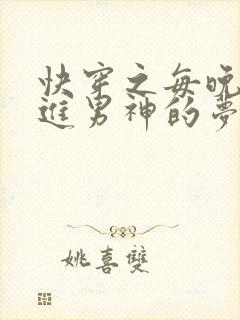 快穿之每晚
进男神的梦
姚喜双